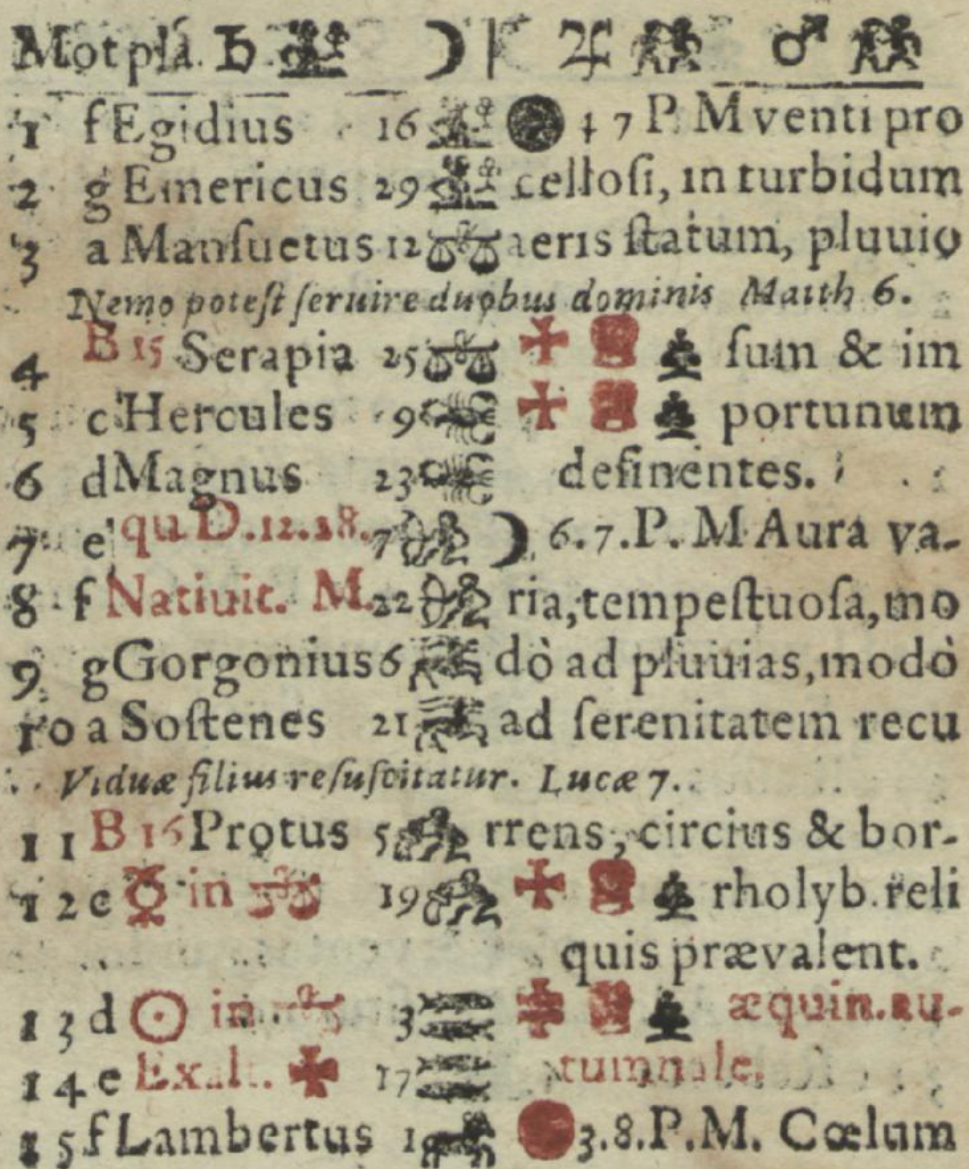 Mot plá. ♄ ☽ ♃ ♂
1 f Egidius 16 4 7 P. M venti pro
2 g Emericus 29 celloſi, in turbidum
3 a Manſuetus 12 ♎ aeris ſtatum, pluuio
Nemo poteſt ſeruire duobus dominis Matth 6.
4 B 15 Serapia 25 ♎ ✚ ſum & im
5 c Hercules 9 ♏ ✚ portunum
6 d Magnus 23 ♏ deſinentes.
7 e qu D. 12. 28. 7 ♐ ☽ 6. 7. P. M Aura va-
8 f Natiuit. M. 22 ♐ ria, tempeſtuoſa, mo
9 g Gorgonius 6 dò ad pluuias, modò
10 a Soſtenes 21 ad ſerenitatem recu
Viduæ filius reſuſcitatur. Lucæ 7.
11 B 16 Protus 5 rrens, circius & bor-
12 c ☿ in ♎ 19 ✚ rholyb. reli
quis prævalent.
13 d ☉ in ♎ 3 ♓ æquin. au-
14 e Exalt. ✠ 17 ♓ tumnale.
15 f Lambertus 1 3. 8. P. M. Cœlum